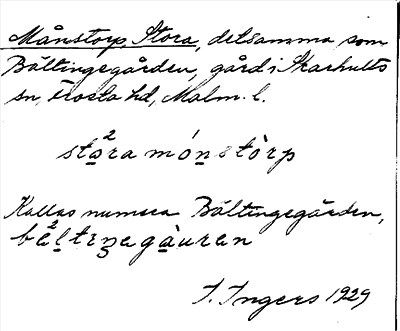 Månstorp Stora, detsamma som
Bältingegården, gård i Skarhults
sn, Frosta hd, Malm. l.
sto²ra mónstòrp
Kallas numera Bältingegården,
bä²ltiŋagàuran
I. Ingers 1929